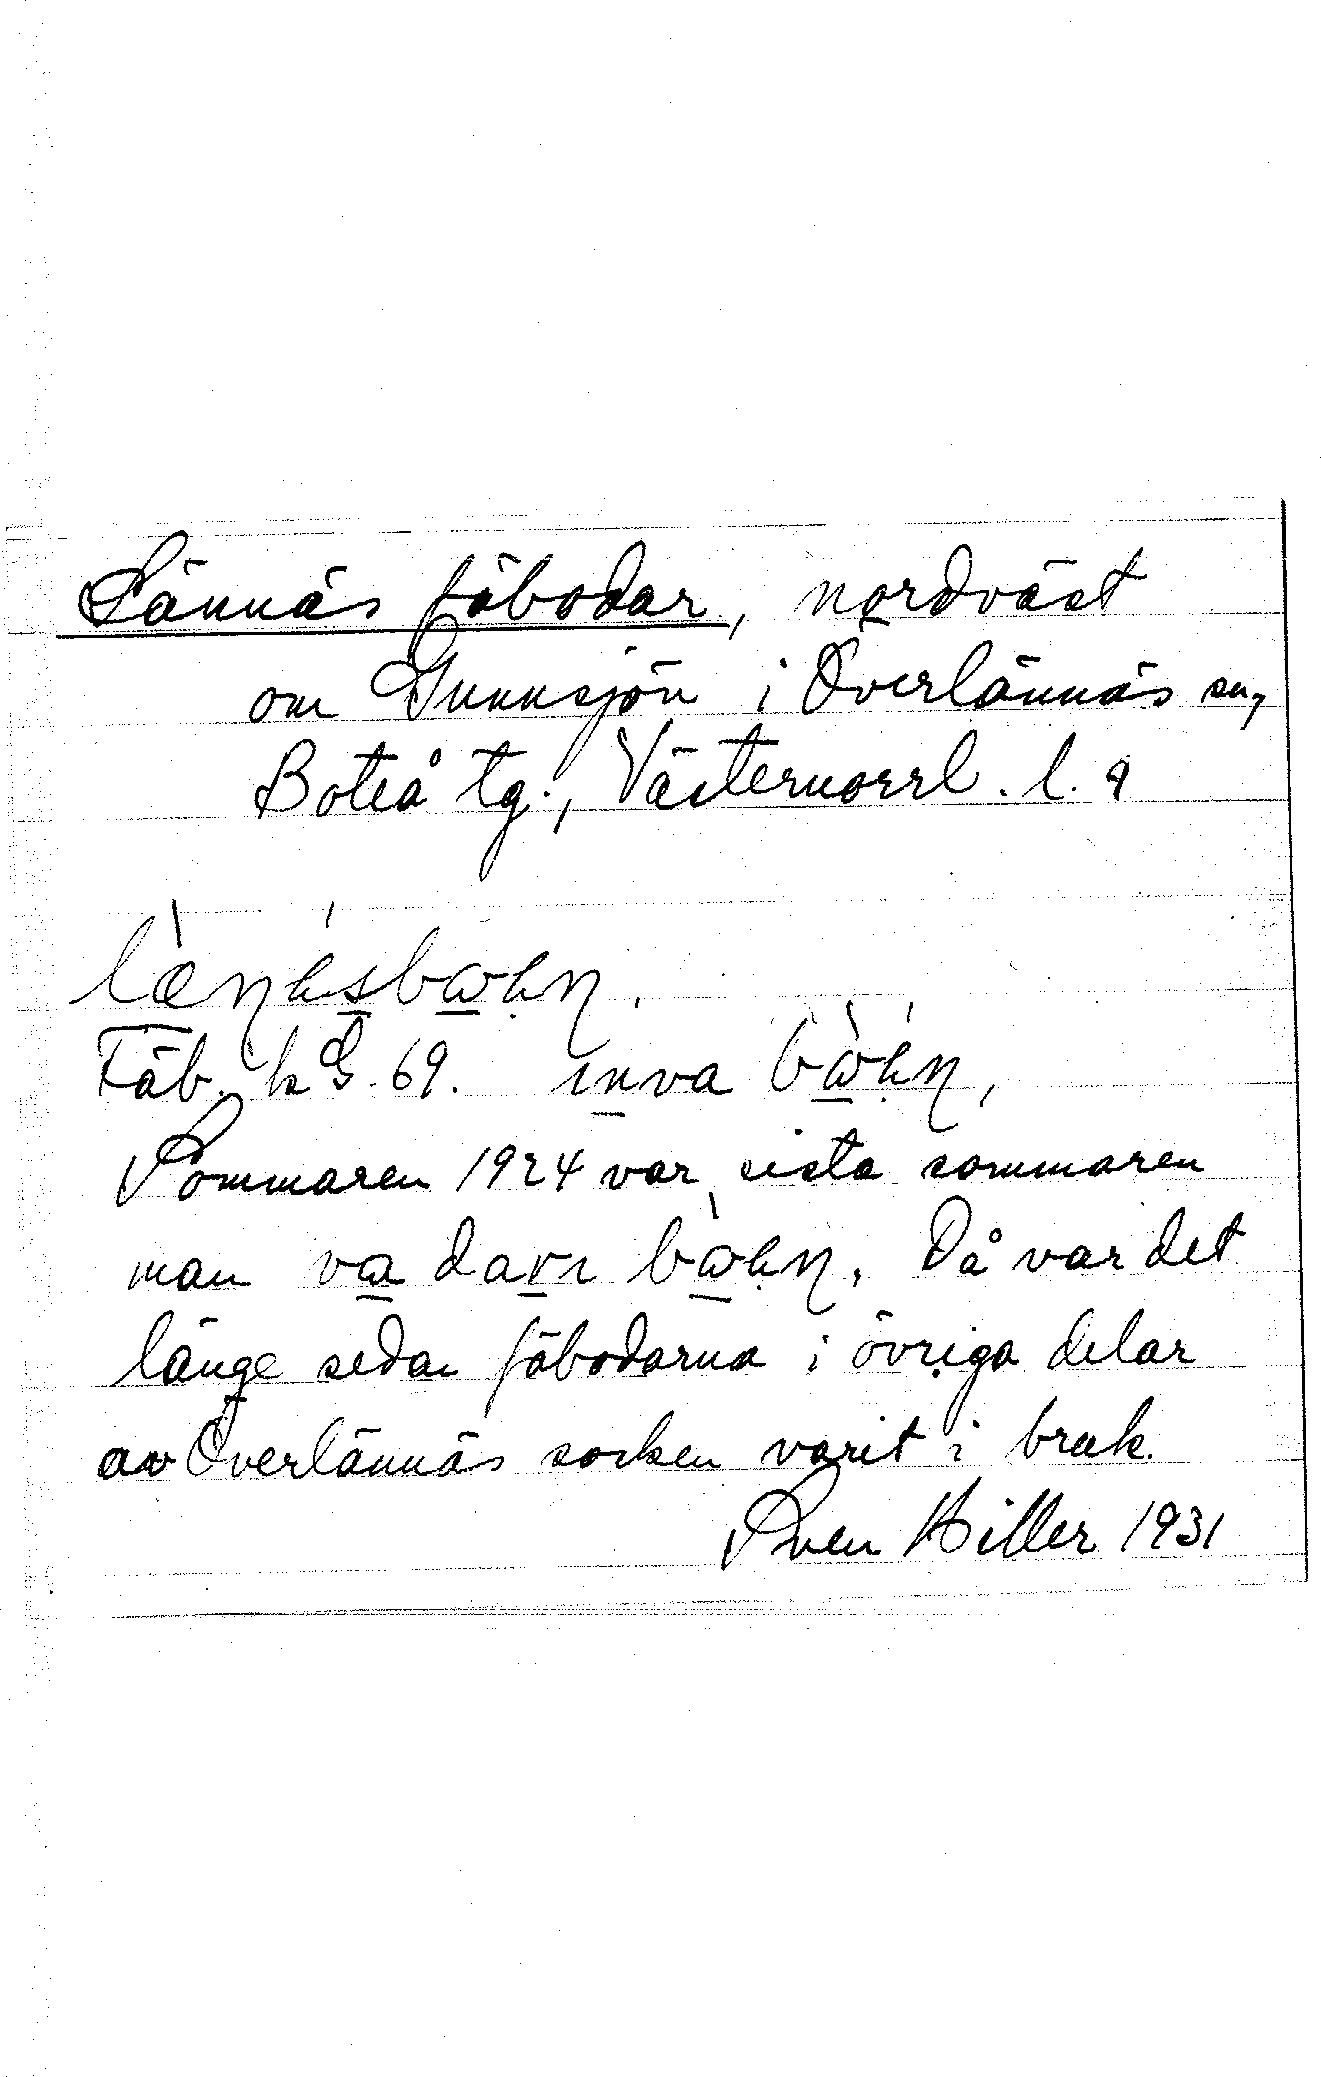 Lännäs fäbodar, nordväst
om Gunnsjön i Överlännäs sn,
Boteå tg., Västernorrl. l.
Fäb. k G. 69. inva
Sommaren 1924 var sista sommaren
man va
Då var det
länge sedan fäbodarna i övriga delar
av Överlännäs socken varit i bruk.
Sven Hiller 1931